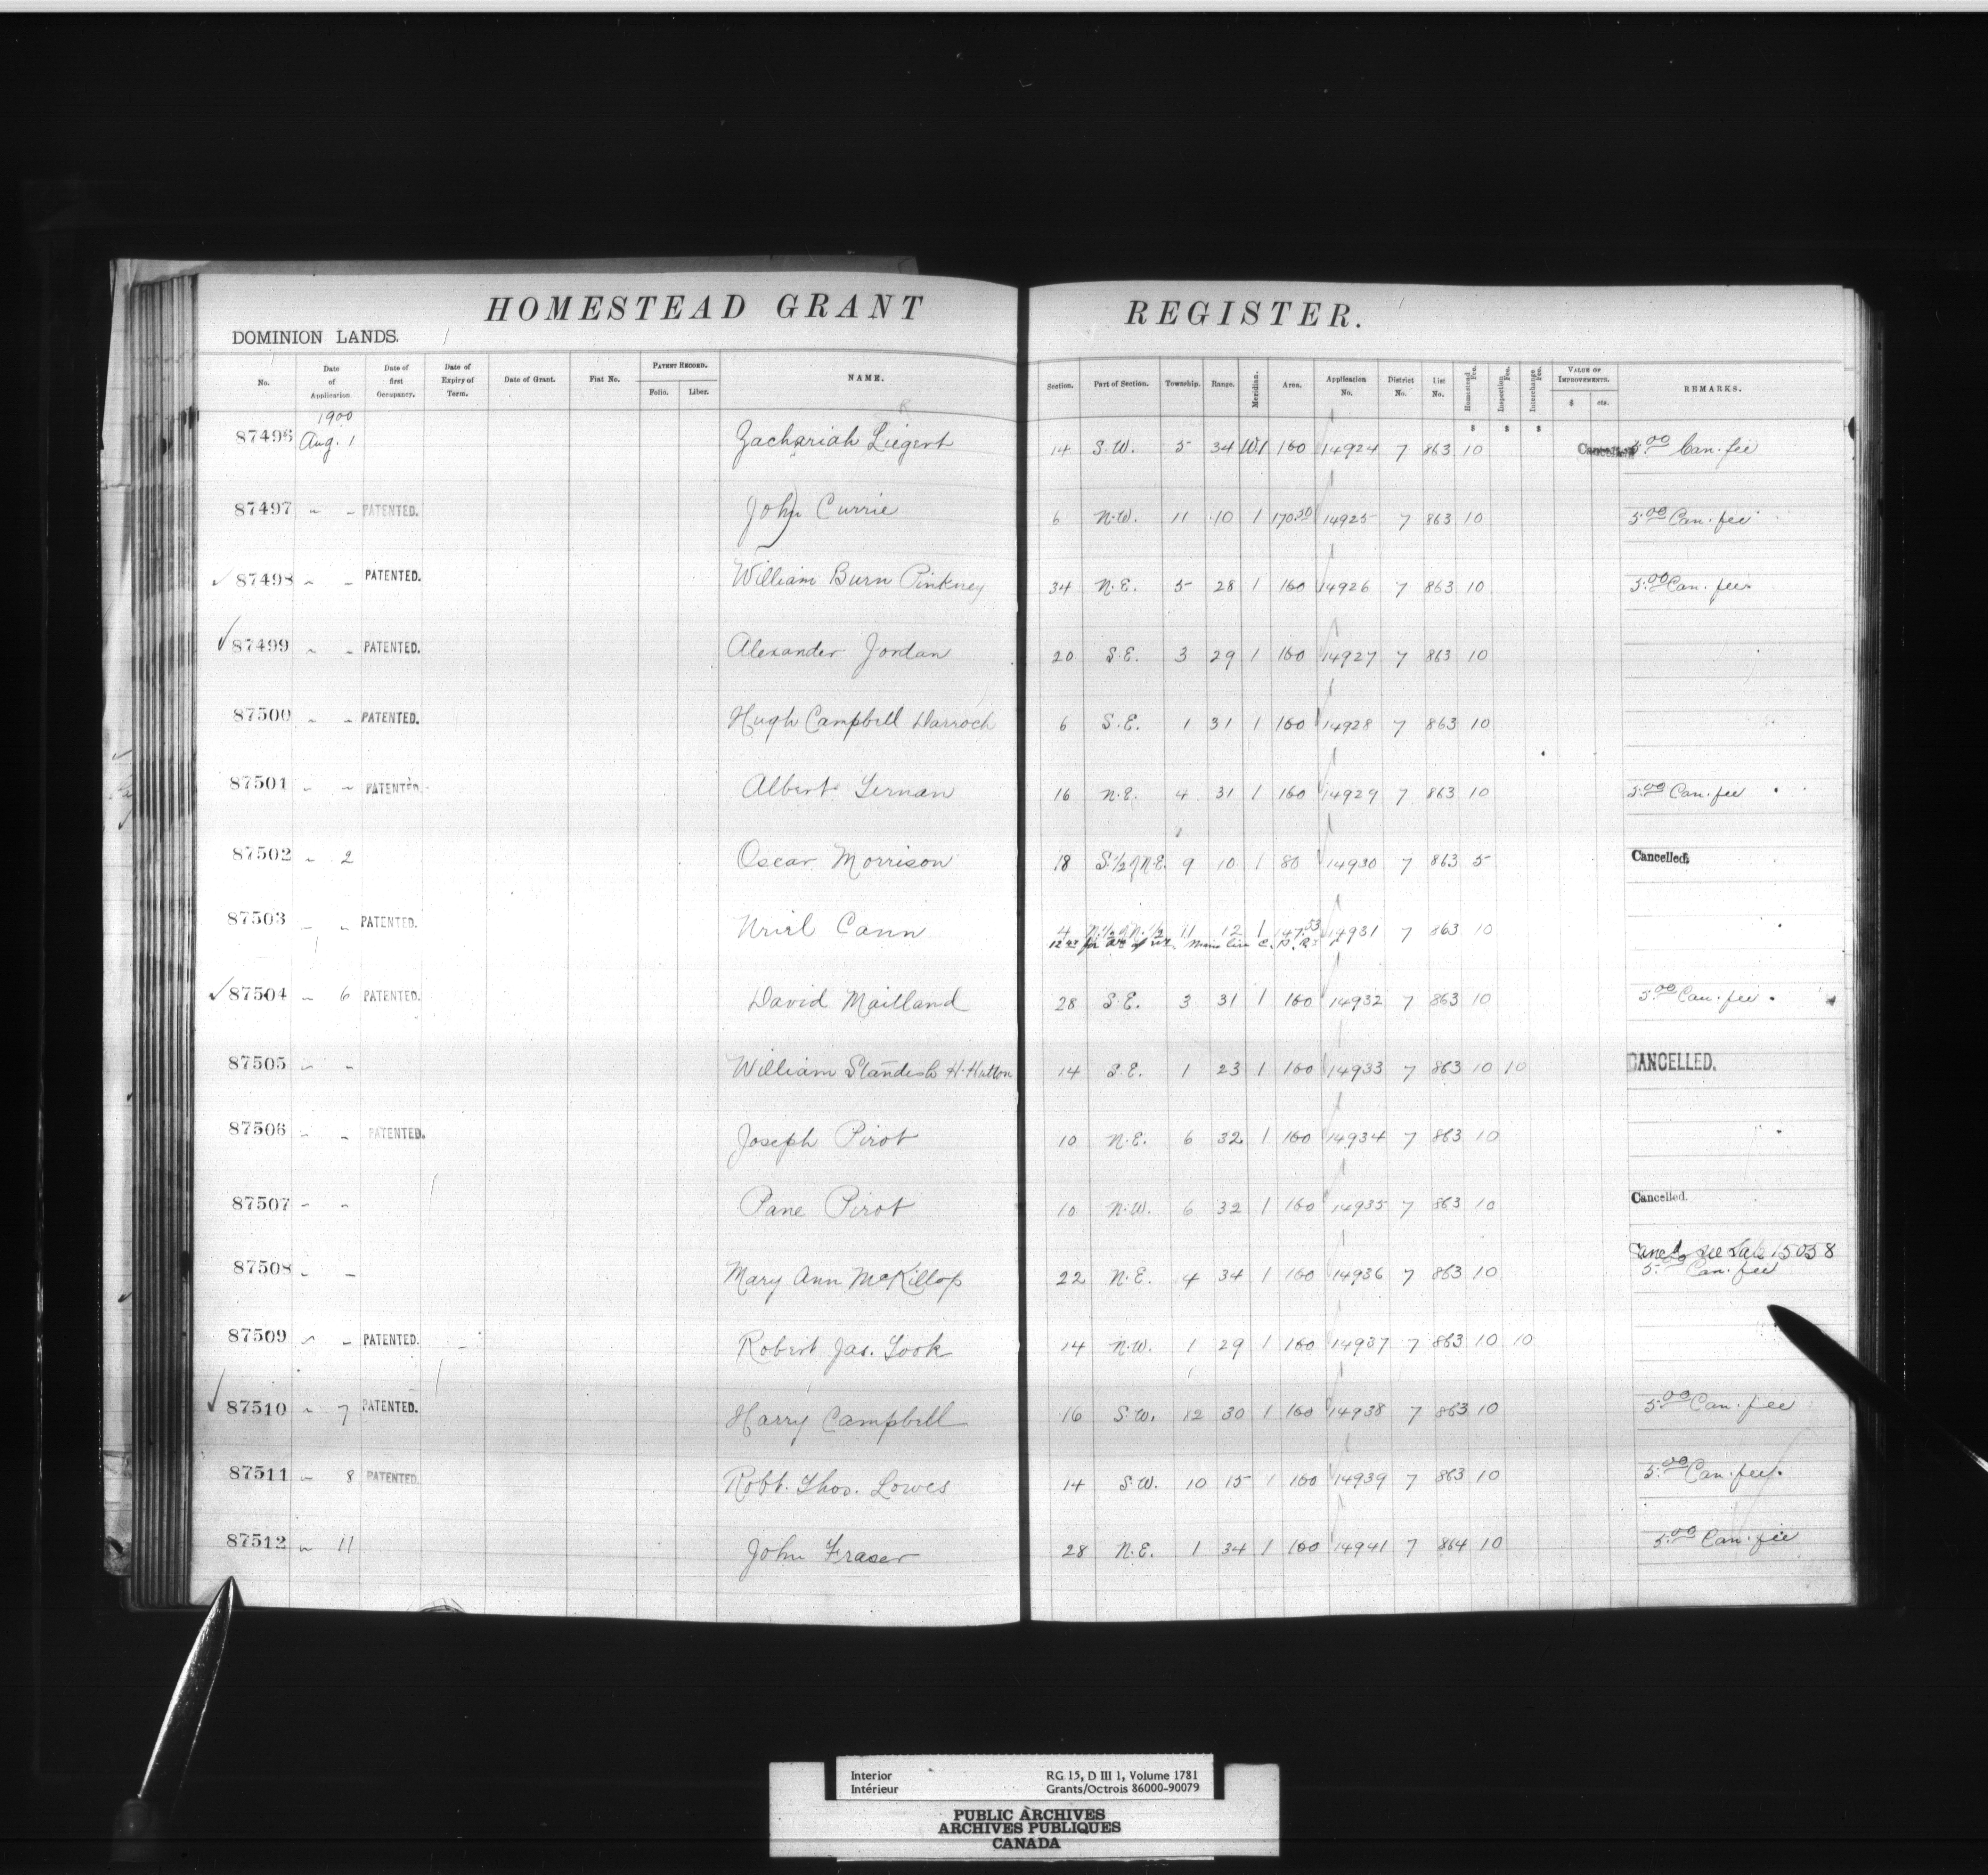 HOMESTEAD GRANT REGISTER.
DOMINION LANDS.
No. Date of Application Date of first Occupancy. Date of Expiry of Term. Date of Grant. Fiat No. PATENT RECORD. Folio. Liber. NAME. Section. Part of Section. Township. Range. Meridian. Area. Application No. District No. List No. Homestead Fee. Inspection Fee. Interchange Fee. VALUE OF IMPROVEMENTS. $ cts. REMARKS.
1900
87496 Aug. 1 Zachariah Liegert 14 S.W. 5 34 W.1 160 14924 7 863 10 Cancelled 5.00 Can. fee
87497 " " PATENTED. John Currie 6 N.W. 11 10 1 170.50 14925 7 863 10 5.00 Can. fee
87498 " " PATENTED. William Burn Pinkney 34 N.E. 5 28 1 160 14926 7 863 10 5.00 Can. fee
87499 " " PATENTED. Alexander Jordan 20 S.E. 3 29 1 160 14927 7 863 10
87500 " " PATENTED. Hugh Campbell Darroch 6 S.E. 1 31 1 160 14928 7 863 10
87501 " " PATENTED. Albert Ternan 16 N.E. 4 31 1 160 14929 7 863 10 5.00 Can. fee
87502 " 2 Oscar Morrison 18 S.1/2 of N.E. 9 10 1 80 14930 7 863 5 Cancelled.
87503 " " PATENTED. Neirl Cann 4 N.1/2 of N.1/2 11 12 1 147.53 14931 7 863 10
Main line C.P.R.
87504 " 6 PATENTED. David Maitland 28 S.E. 3 31 1 160 14932 7 863 10 5.00 Can. fee
87505 " " William Standish H. Hutton 14 S.E. 1 23 1 160 14933 7 863 10 10 CANCELLED.
87506 " " PATENTED. Joseph Pirot 10 N.E. 6 32 1 160 14934 7 863 10
87507 " " Pane Pirot 10 N.W. 6 32 1 160 14935 7 863 10 Cancelled.
87508 " " Mary Ann McKillop 22 N.E. 4 34 1 160 14936 7 863 10 Canc'd see Sale 15058
5.00 Can. fee
87509 " " PATENTED. Robert Jas. Took 14 N.W. 1 29 1 160 14937 7 863 10 10
87510 " 7 PATENTED. Harry Campbell 16 S.W. 12 30 1 160 14938 7 863 10 5.00 Can. fee
87511 " 8 PATENTED. Robt. Thos. Lowes 14 S.W. 10 15 1 160 14939 7 863 10 5.00 Can. fee
87512 " 11 John Fraser 28 N.E. 1 34 1 160 14941 7 864 10 5.00 Can. fee
Interior RG 15, D III 1, Volume 1781
Intérieur Grants/Octrois 86000-90079
PUBLIC ARCHIVES
ARCHIVES PUBLIQUES
CANADA